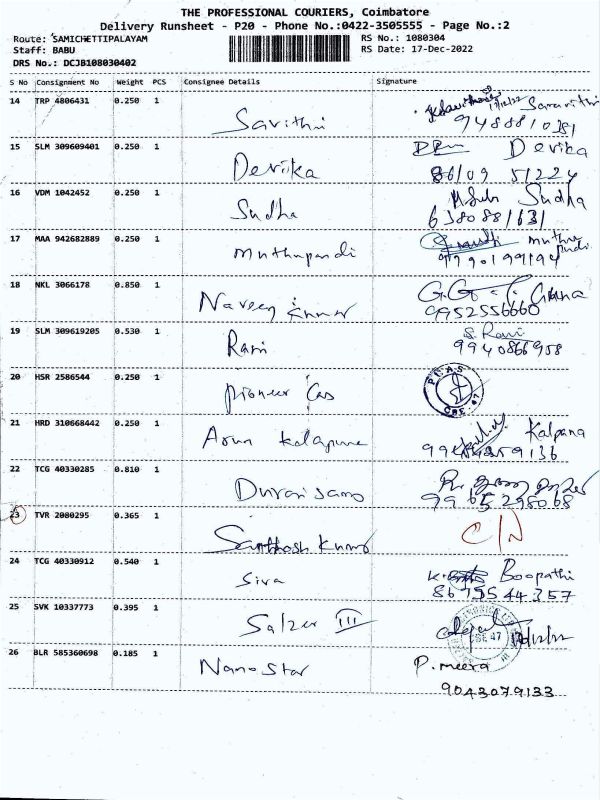 THE PROFESSIONAL COURIERS, Coimbatore
Delivery Runsheet - P20 - Phone No.:0422-3505555 - Page No.:2
Route: SAMICHETTIPALAYAM
RS No.: 1080304
Staff: BABU
RS Date: 17-Dec-2022
DRS No.: DCJB108030402
S No Consignment No Weight PCS Consignee Details Signature
14 TRP 4806431 0.250 1 Savithri
9488810381
15 SLM 309609401 0.250 1 Devika Devika
86109 51224
16 VDM 1042452 0.250 1 Sudha Sudha
6380881631
17 MAA 942682889 0.250 1 muthupandi muthu
pandi
18 NKL 3066178 0.850 1 Naveen kumar
9952556660
19 SLM 309619205 0.530 1 Rani S. Rani
9940866958
20 HSR 2586544 0.250 1 Pioneer Cas P.C.A.S CBE-47
21 HRD 310668442 0.250 1 Arun kalapuna Kalpana
59136
22 TCG 40330285 0.810 1 Duraisamo
99 65 295068
23 TVR 2080295 0.365 1 Santhosh Kumar C/N
24 TCG 40330912 0.540 1 Siva Boopathi
86755 44357
25 SVK 10337773 0.395 1 Salzer III
17/12/22
26 BLR 585360698 0.185 1 Nanostar P. meera
9043079133